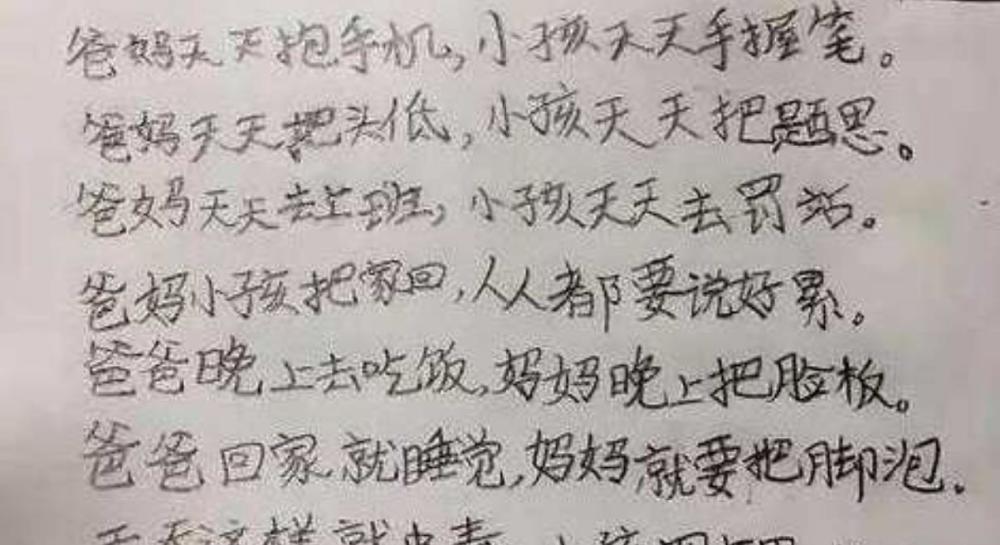 爸妈天天抱手机,小孩天天手握笔。
爸妈天天把头低,小孩天天把题思。
爸妈天天去上班,小孩天天去罚站。
爸妈小孩把家回,人人都要说好累。
爸爸晚上去吃饭,妈妈晚上把脸板。
爸爸回家就睡觉,妈妈就要把脚泡.
天天这样就中毒